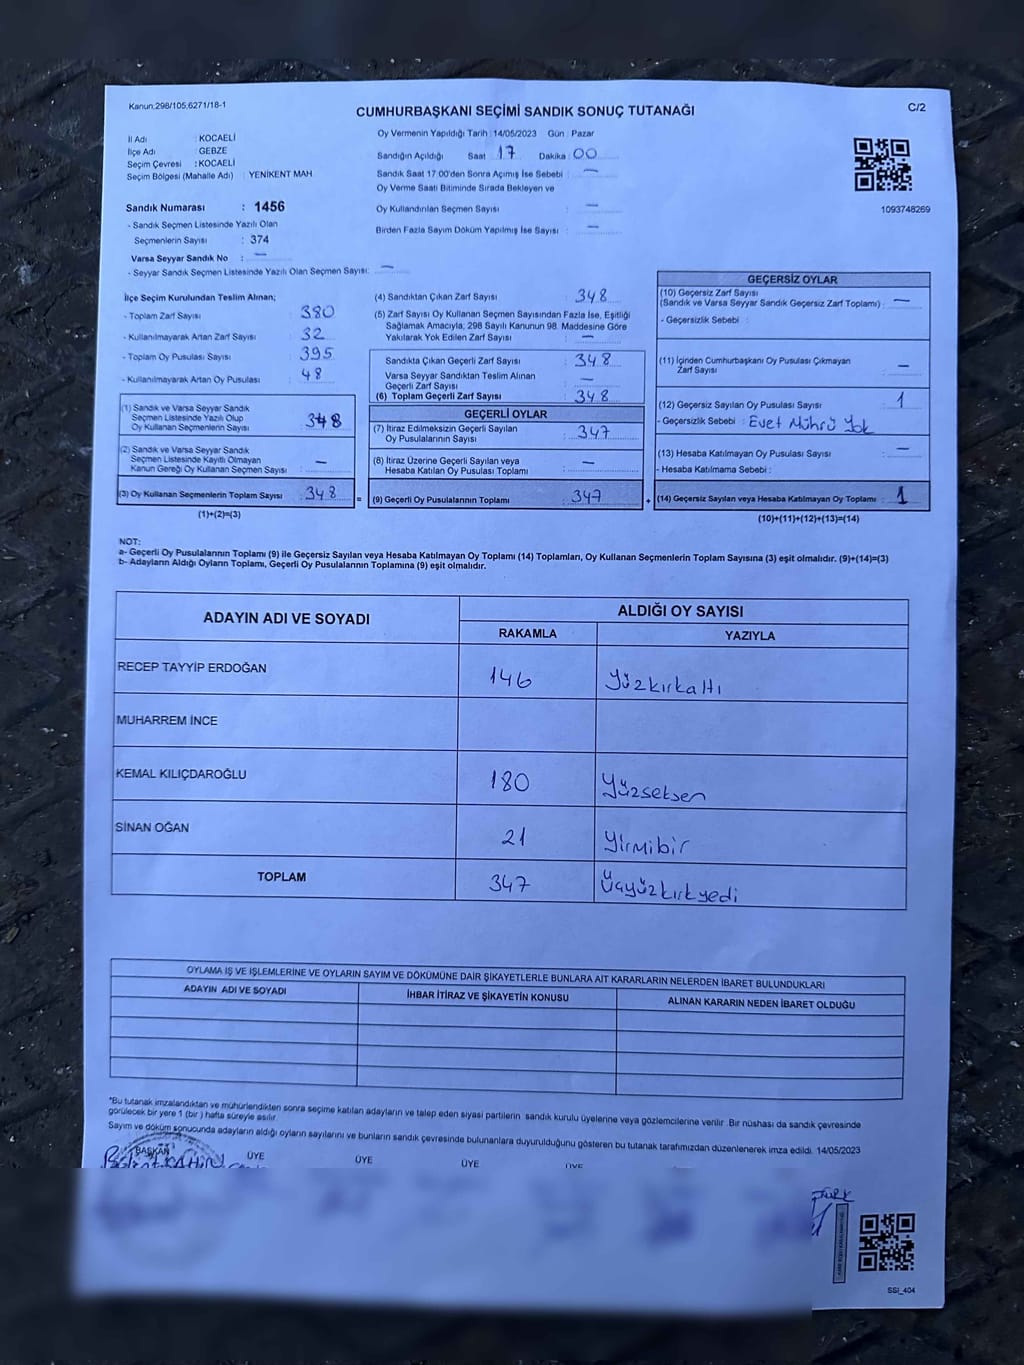 Kanun:298/105,6271/18-1
CUMHURBAŞKANI SEÇİMİ SANDIK SONUÇ TUTANAĞI
C/2
İl Adı : KOCAELİ
İlçe Adı : GEBZE
Seçim Çevresi : KOCAELİ
Seçim Bölgesi (Mahalle Adı) : YENİKENT MAH
Sandık Numarası : 1456
- Sandık Seçmen Listesinde Yazılı Olan
Seçmenlerin Sayısı : 374
Varsa Seyyar Sandık No : —
- Seyyar Sandık Seçmen Listesinde Yazılı Olan Seçmen Sayısı: —
Oy Vermenin Yapıldığı Tarih : 14/05/2023 Gün : Pazar
Sandığın Açıldığı Saat 17 Dakika : 00
Sandık Saat 17:00'den Sonra Açımış İse Sebebi : —
Oy Verme Saati Bitiminde Sırada Bekleyen ve
Oy Kullandırılan Seçmen Sayısı : —
Birden Fazla Sayım Döküm Yapılmış İse Sayısı : —
1093748269
İlçe Seçim Kurulundan Teslim Alınan;
- Toplam Zarf Sayısı : 380
- Kullanılmayarak Artan Zarf Sayısı : 32
- Toplam Oy Pusulası Sayısı : 395
- Kullanılmayarak Artan Oy Pusulası : 48
(1) Sandık ve Varsa Seyyar Sandık
Seçmen Listesinde Yazılı Olup
Oy Kullanan Seçmenlerin Sayısı : 348
(2) Sandık ve Varsa Seyyar Sandık
Seçmen Listesinde Kayıtlı Olmayan
Kanun Gereği Oy Kullanan Seçmen Sayısı : —
(3) Oy Kullanan Seçmenlerin Toplam Sayısı : 348
(1)+(2)=(3)
(4) Sandıktan Çıkan Zarf Sayısı : 348
(5) Zarf Sayısı Oy Kullanan Seçmen Sayısından Fazla İse, Eşitliği
Sağlamak Amacıyla; 298 Sayılı Kanunun 98. Maddesine Göre
Yakılarak Yok Edilen Zarf Sayısı : —
Sandıkta Çıkan Geçerli Zarf Sayısı : 348
Varsa Seyyar Sandıktan Teslim Alınan
Geçerli Zarf Sayısı : —
(6) Toplam Geçerli Zarf Sayısı : 348
GEÇERLİ OYLAR
(7) İtiraz Edilmeksizin Geçerli Sayılan
Oy Pusulalarının Sayısı : 347
(8) İtiraz Üzerine Geçerli Sayılan veya
Hesaba Katılan Oy Pusulası Toplamı : —
= (9) Geçerli Oy Pusulalarının Toplamı : 347
GEÇERSİZ OYLAR
(10) Geçersiz Zarf Sayısı
(Sandık ve Varsa Seyyar Sandık Geçersiz Zarf Toplamı) : —
- Geçersizlik Sebebi :
(11) İçinden Cumhurbaşkanı Oy Pusulası Çıkmayan
Zarf Sayısı : —
(12) Geçersiz Sayılan Oy Pusulası Sayısı : 1
- Geçersizlik Sebebi : Evet Mührü Yok
(13) Hesaba Katılmayan Oy Pusulası Sayısı : —
- Hesaba Katılmama Sebebi :
+ (14) Geçersiz Sayılan veya Hesaba Katılmayan Oy Toplamı : 1
(10)+(11)+(12)+(13)=(14)
NOT:
a- Geçerli Oy Pusulalarının Toplamı (9) ile Geçersiz Sayılan veya Hesaba Katılmayan Oy Toplamı (14) Toplamları, Oy Kullanan Seçmenlerin Toplam Sayısına (3) eşit olmalıdır. (9)+(14)=(3)
b- Adayların Aldığı Oyların Toplamı, Geçerli Oy Pusulalarının Toplamına (9) eşit olmalıdır.
ADAYIN ADI VE SOYADI
ALDIĞI OY SAYISI
RAKAMLA YAZIYLA
RECEP TAYYİP ERDOĞAN 146 Yüzkırkaltı
MUHARREM İNCE
KEMAL KILIÇDAROĞLU 180 Yüzseksen
SİNAN OĞAN 21 Yirmibir
TOPLAM 347 Üçyüzkırkyedi
OYLAMA İŞ VE İŞLEMLERİNE VE OYLARIN SAYIM VE DÖKÜMÜNE DAİR ŞİKAYETLERLE BUNLARA AİT KARARLARIN NELERDEN İBARET BULUNDUKLARI
ADAYIN ADI VE SOYADI İHBAR İTİRAZ VE ŞİKAYETİN KONUSU ALINAN KARARIN NEDEN İBARET OLDUĞU
*Bu tutanak imzalandıktan ve mühürlendikten sonra seçime katılan adayların ve talep eden siyasi partilerin sandık kurulu üyelerine veya gözlemcilerine verilir. Bir nüshası da sandık çevresinde
görülecek bir yere 1 (bir) hafta süreyle asılır.
Sayım ve döküm sonucunda adayların aldığı oyların sayılarını ve bunların sandık çevresinde bulunanlara duyurulduğunu gösteren bu tutanak tarafımızdan düzenlenerek imza edildi. 14/05/2023
BAŞKAN ÜYE ÜYE ÜYE ÜYE
SSI_404